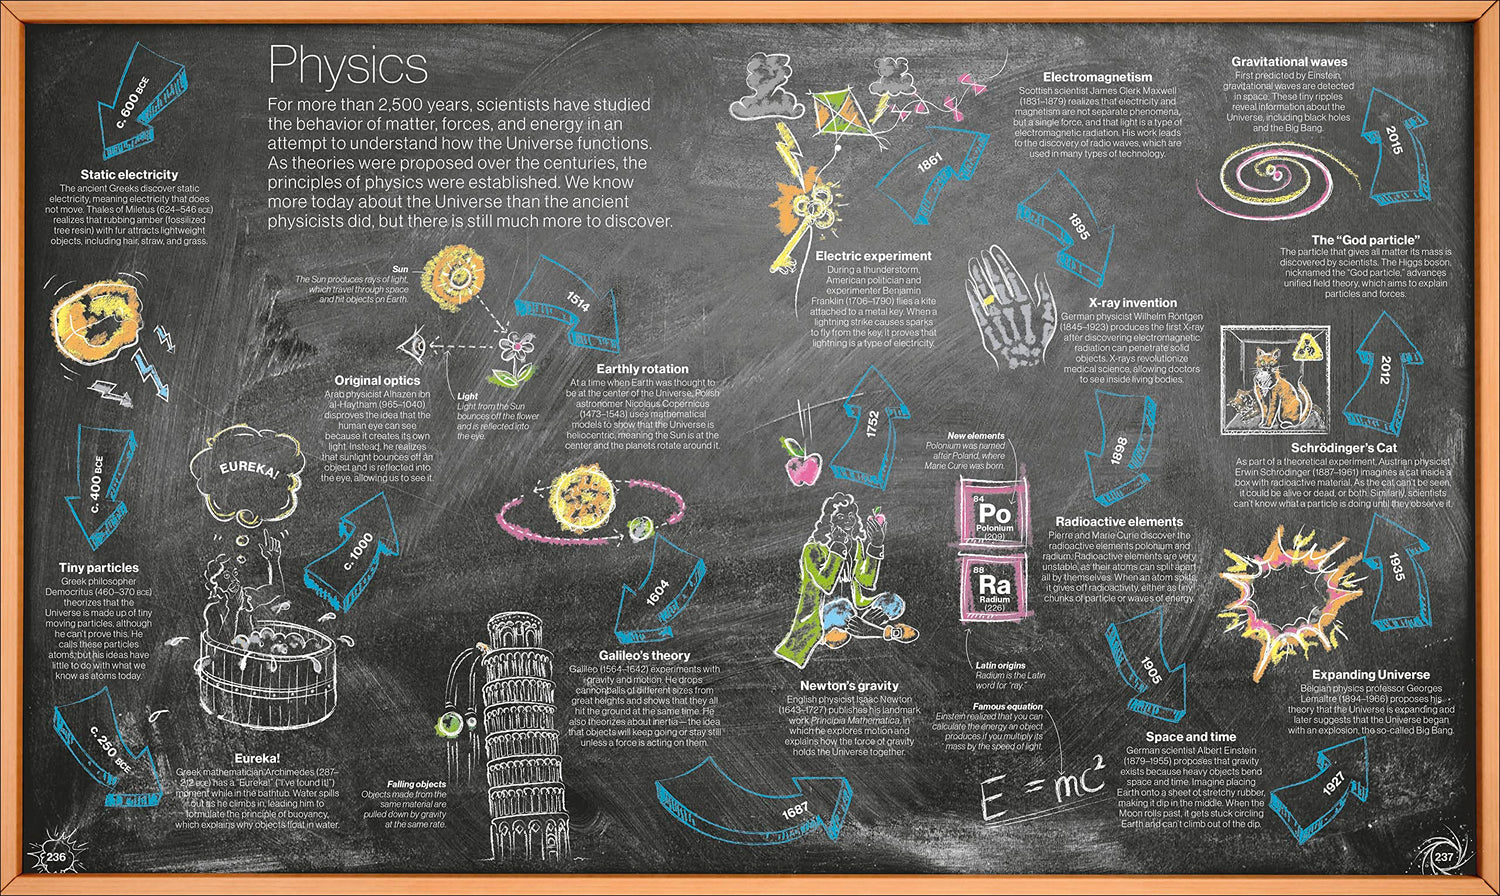 Physics
For more than 2,500 years, scientists have studied
the behavior of matter, forces, and energy in an
attempt to understand how the Universe functions.
As theories were proposed over the centuries, the
principles of physics were established. We know
more today about the Universe than the ancient
physicists did, but there is still much more to discover.
c. 600 BCE
Static electricity
The ancient Greeks discover static
electricity, meaning electricity that does
not move. Thales of Miletus (624–546 BCE)
realizes that rubbing amber (fossilized
tree resin) with fur attracts lightweight
objects, including hair, straw, and grass.
c. 400 BCE
Tiny particles
Greek philosopher
Democritus (460–370 BCE)
theorizes that the
Universe is made up of tiny
moving particles, although
he can't prove this. He
calls these particles
atoms, but his ideas have
little to do with what we
know as atoms today.
c. 250 BCE
EUREKA!
Eureka!
Greek mathematician Archimedes (287–
212 BCE) has a "Eureka!" ("I've found it!")
moment while in the bathtub. Water spills
out as he climbs in, leading him to
formulate the principle of buoyancy,
which explains why objects float in water.
c. 1000
Sun
The Sun produces rays of light,
which travel through space
and hit objects on Earth.
Original optics
Arab physicist Alhazen ibn
al-Haytham (965–1040)
disproves the idea that the
human eye can see
because it creates its own
light. Instead, he realizes
that sunlight bounces off an
object and is reflected into
the eye, allowing us to see it.
Light
Light from the Sun
bounces off the flower
and is reflected into
the eye.
1514
Earthly rotation
At a time when Earth was thought to
be at the center of the Universe, Polish
astronomer Nicolaus Copernicus
(1473–1543) uses mathematical
models to show that the Universe is
heliocentric, meaning the Sun is at the
center and the planets rotate around it.
1604
Galileo's theory
Galileo (1564–1642) experiments with
gravity and motion. He drops
cannonballs of different sizes from
great heights and shows that they all
hit the ground at the same time. He
also theorizes about inertia—the idea
that objects will keep going or stay still
unless a force is acting on them.
Falling objects
Objects made from the
same material are
pulled down by gravity
at the same rate.
1687
Newton's gravity
English physicist Isaac Newton
(1643–1727) publishes his landmark
work Principia Mathematica, in
which he explores motion and
explains how the force of gravity
holds the Universe together.
1752
Electric experiment
During a thunderstorm,
American politician and
experimenter Benjamin
Franklin (1706–1790) flies a kite
attached to a metal key. When a
lightning strike causes sparks
to fly from the key, it proves that
lightning is a type of electricity.
1861
Electromagnetism
Scottish scientist James Clerk Maxwell
(1831–1879) realizes that electricity and
magnetism are not separate phenomena,
but a single force, and that light is a type of
electromagnetic radiation. His work leads
to the discovery of radio waves, which are
used in many types of technology.
1895
X-ray invention
German physicist Wilhelm Röntgen
(1845–1923) produces the first X-ray
after discovering electromagnetic
radiation can penetrate solid
objects. X-rays revolutionize
medical science, allowing doctors
to see inside living bodies.
1898
New elements
Polonium was named
after Poland, where
Marie Curie was born.
84
Po
Polonium
(209)
88
Ra
Radium
(226)
Latin origins
Radium is the Latin
word for "ray".
Radioactive elements
Pierre and Marie Curie discover the
radioactive elements polonium and
radium. Radioactive elements are very
unstable, as their atoms can split apart
all by themselves. When an atom splits,
it gives off radioactivity, either as tiny
chunks of particle or waves of energy.
1905
Famous equation
Einstein realized that you can
calculate the energy an object
produces if you multiply its
mass by the speed of light.
E = mc²
Space and time
German scientist Albert Einstein
(1879–1955) proposes that gravity
exists because heavy objects bend
space and time. Imagine placing
Earth onto a sheet of stretchy rubber,
making it dip in the middle. When the
Moon rolls past, it gets stuck circling
Earth and can't climb out of the dip.
1927
Expanding Universe
Belgian physics professor Georges
Lemaître (1894–1966) proposes his
theory that the Universe is expanding and
later suggests that the Universe began
with an explosion, the so-called Big Bang.
1935
Schrödinger's Cat
As part of a theoretical experiment, Austrian physicist
Erwin Schrödinger (1887–1961) imagines a cat inside a
box with radioactive material. As the cat can't be seen,
it could be alive or dead, or both. Similarly, scientists
can't know what a particle is doing until they observe it.
2012
The "God particle"
The particle that gives all matter its mass is
discovered by scientists. The Higgs boson,
nicknamed the "God particle," advances
unified field theory, which aims to explain
particles and forces.
2015
Gravitational waves
First predicted by Einstein,
gravitational waves are detected
in space. These tiny ripples
reveal information about the
Universe, including black holes
and the Big Bang.
236
237